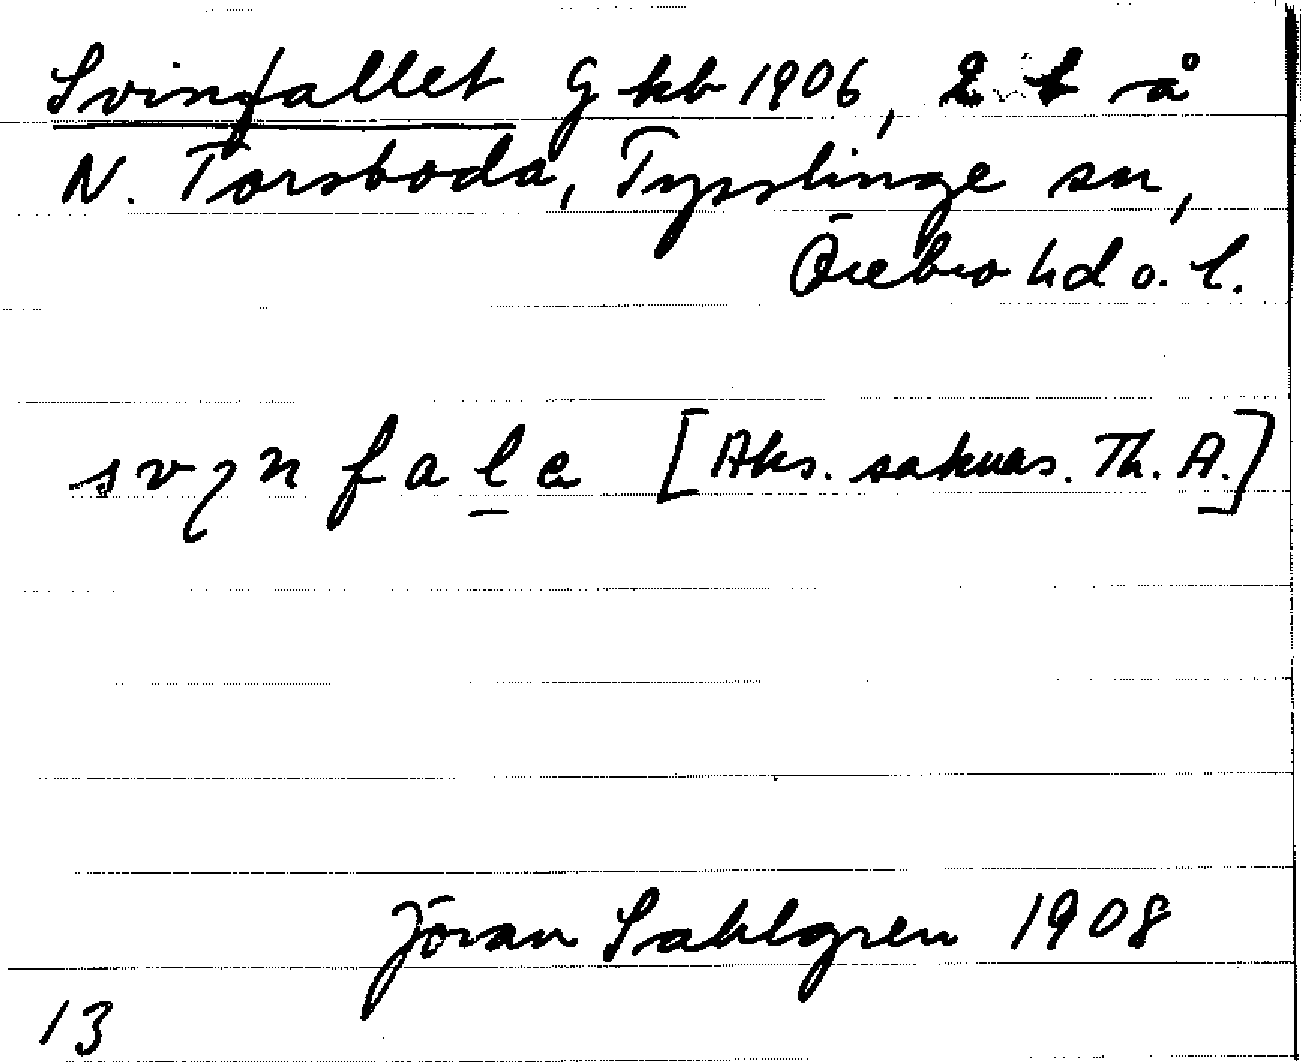 Svinfallet G kb 1906, 2 t å
N. Torsboda, Tysslinge sn,
Örebro hd o. l.
svɿn fale [Aks. saknas. Th. A.]
Jöran Sahlgren 1908
13